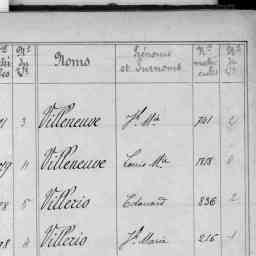 Nº du Vº Noms Prénoms et Surnoms Nº matri cules Nº du Vº
3 Villeneuve Jh Mie 741 2
11 Villeneuve Louis Mie 1818
5 Villerio Edouard 836 2
4 Villerio Jh Marie 216 1